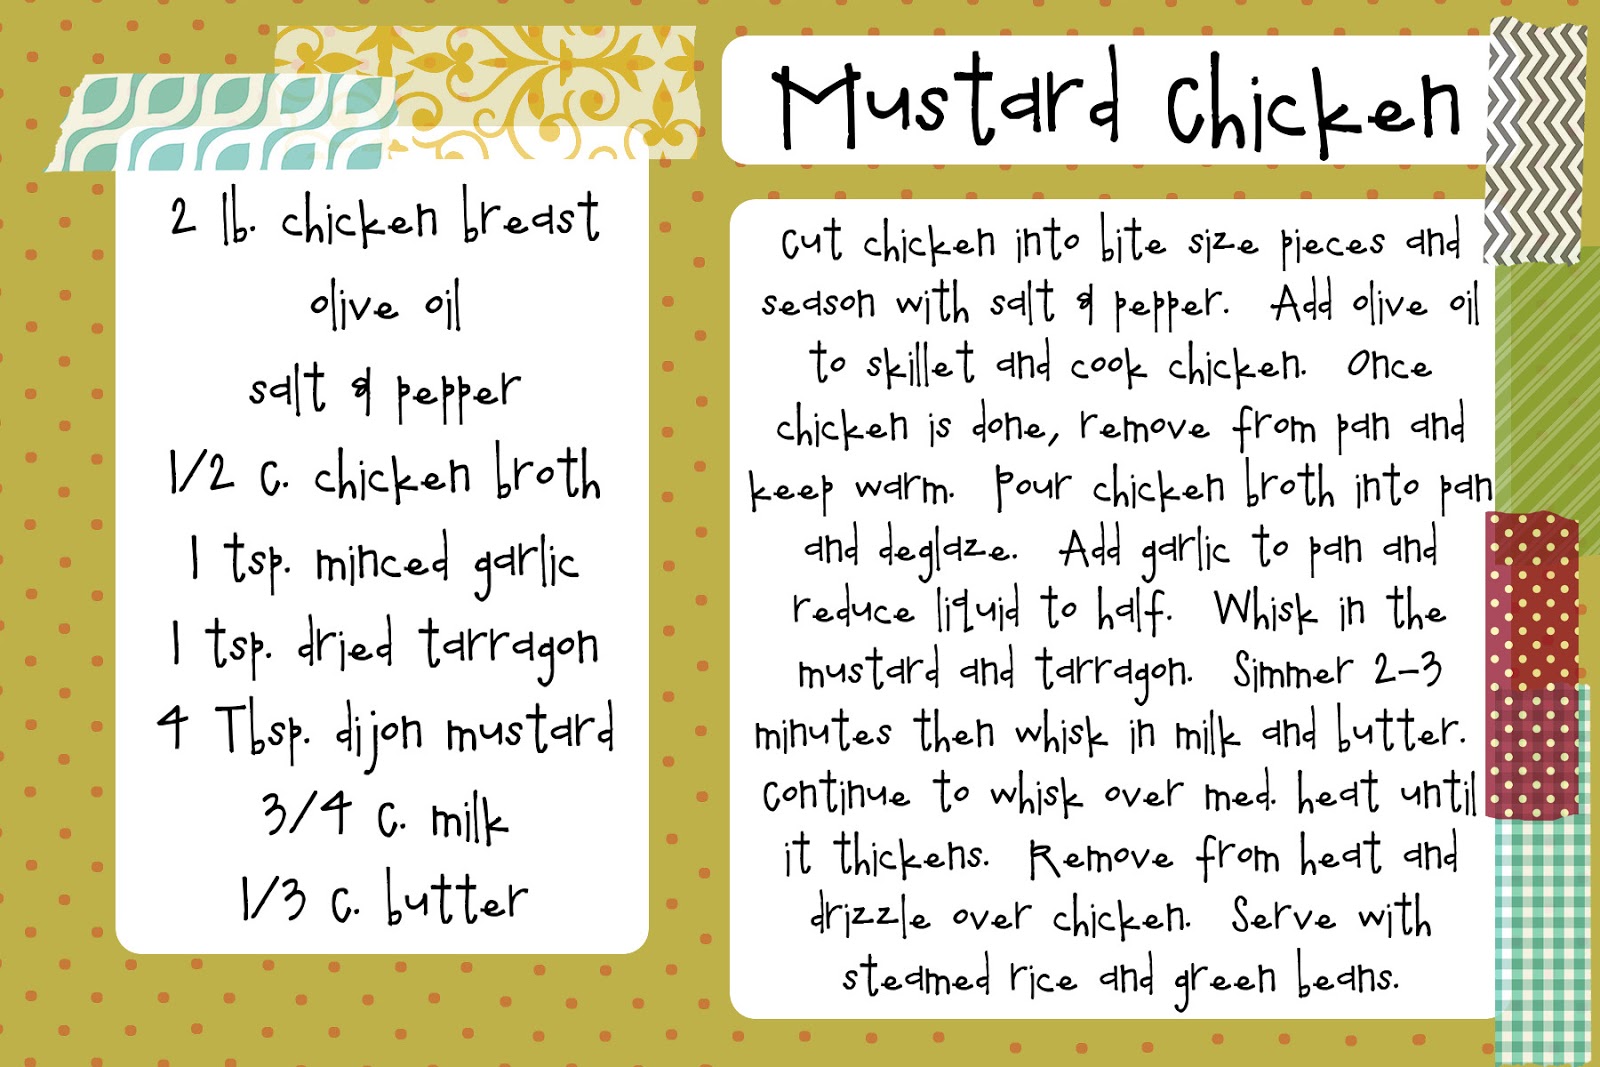 Mustard Chicken
2 lb. chicken breast
olive oil
salt & pepper
1/2 c. chicken broth
1 tsp. minced garlic
1 tsp. dried tarragon
4 Tbsp. dijon mustard
3/4 c. milk
1/3 c. butter
Cut chicken into bite size pieces and
season with salt & pepper. Add olive oil
to skillet and cook chicken. Once
chicken is done, remove from pan and
keep warm. Pour chicken broth into pan
and deglaze. Add garlic to pan and
reduce liquid to half. Whisk in the
mustard and tarragon. Simmer 2-3
minutes then whisk in milk and butter.
Continue to whisk over med. heat until
it thickens. Remove from heat and
drizzle over chicken. Serve with
steamed rice and green beans.